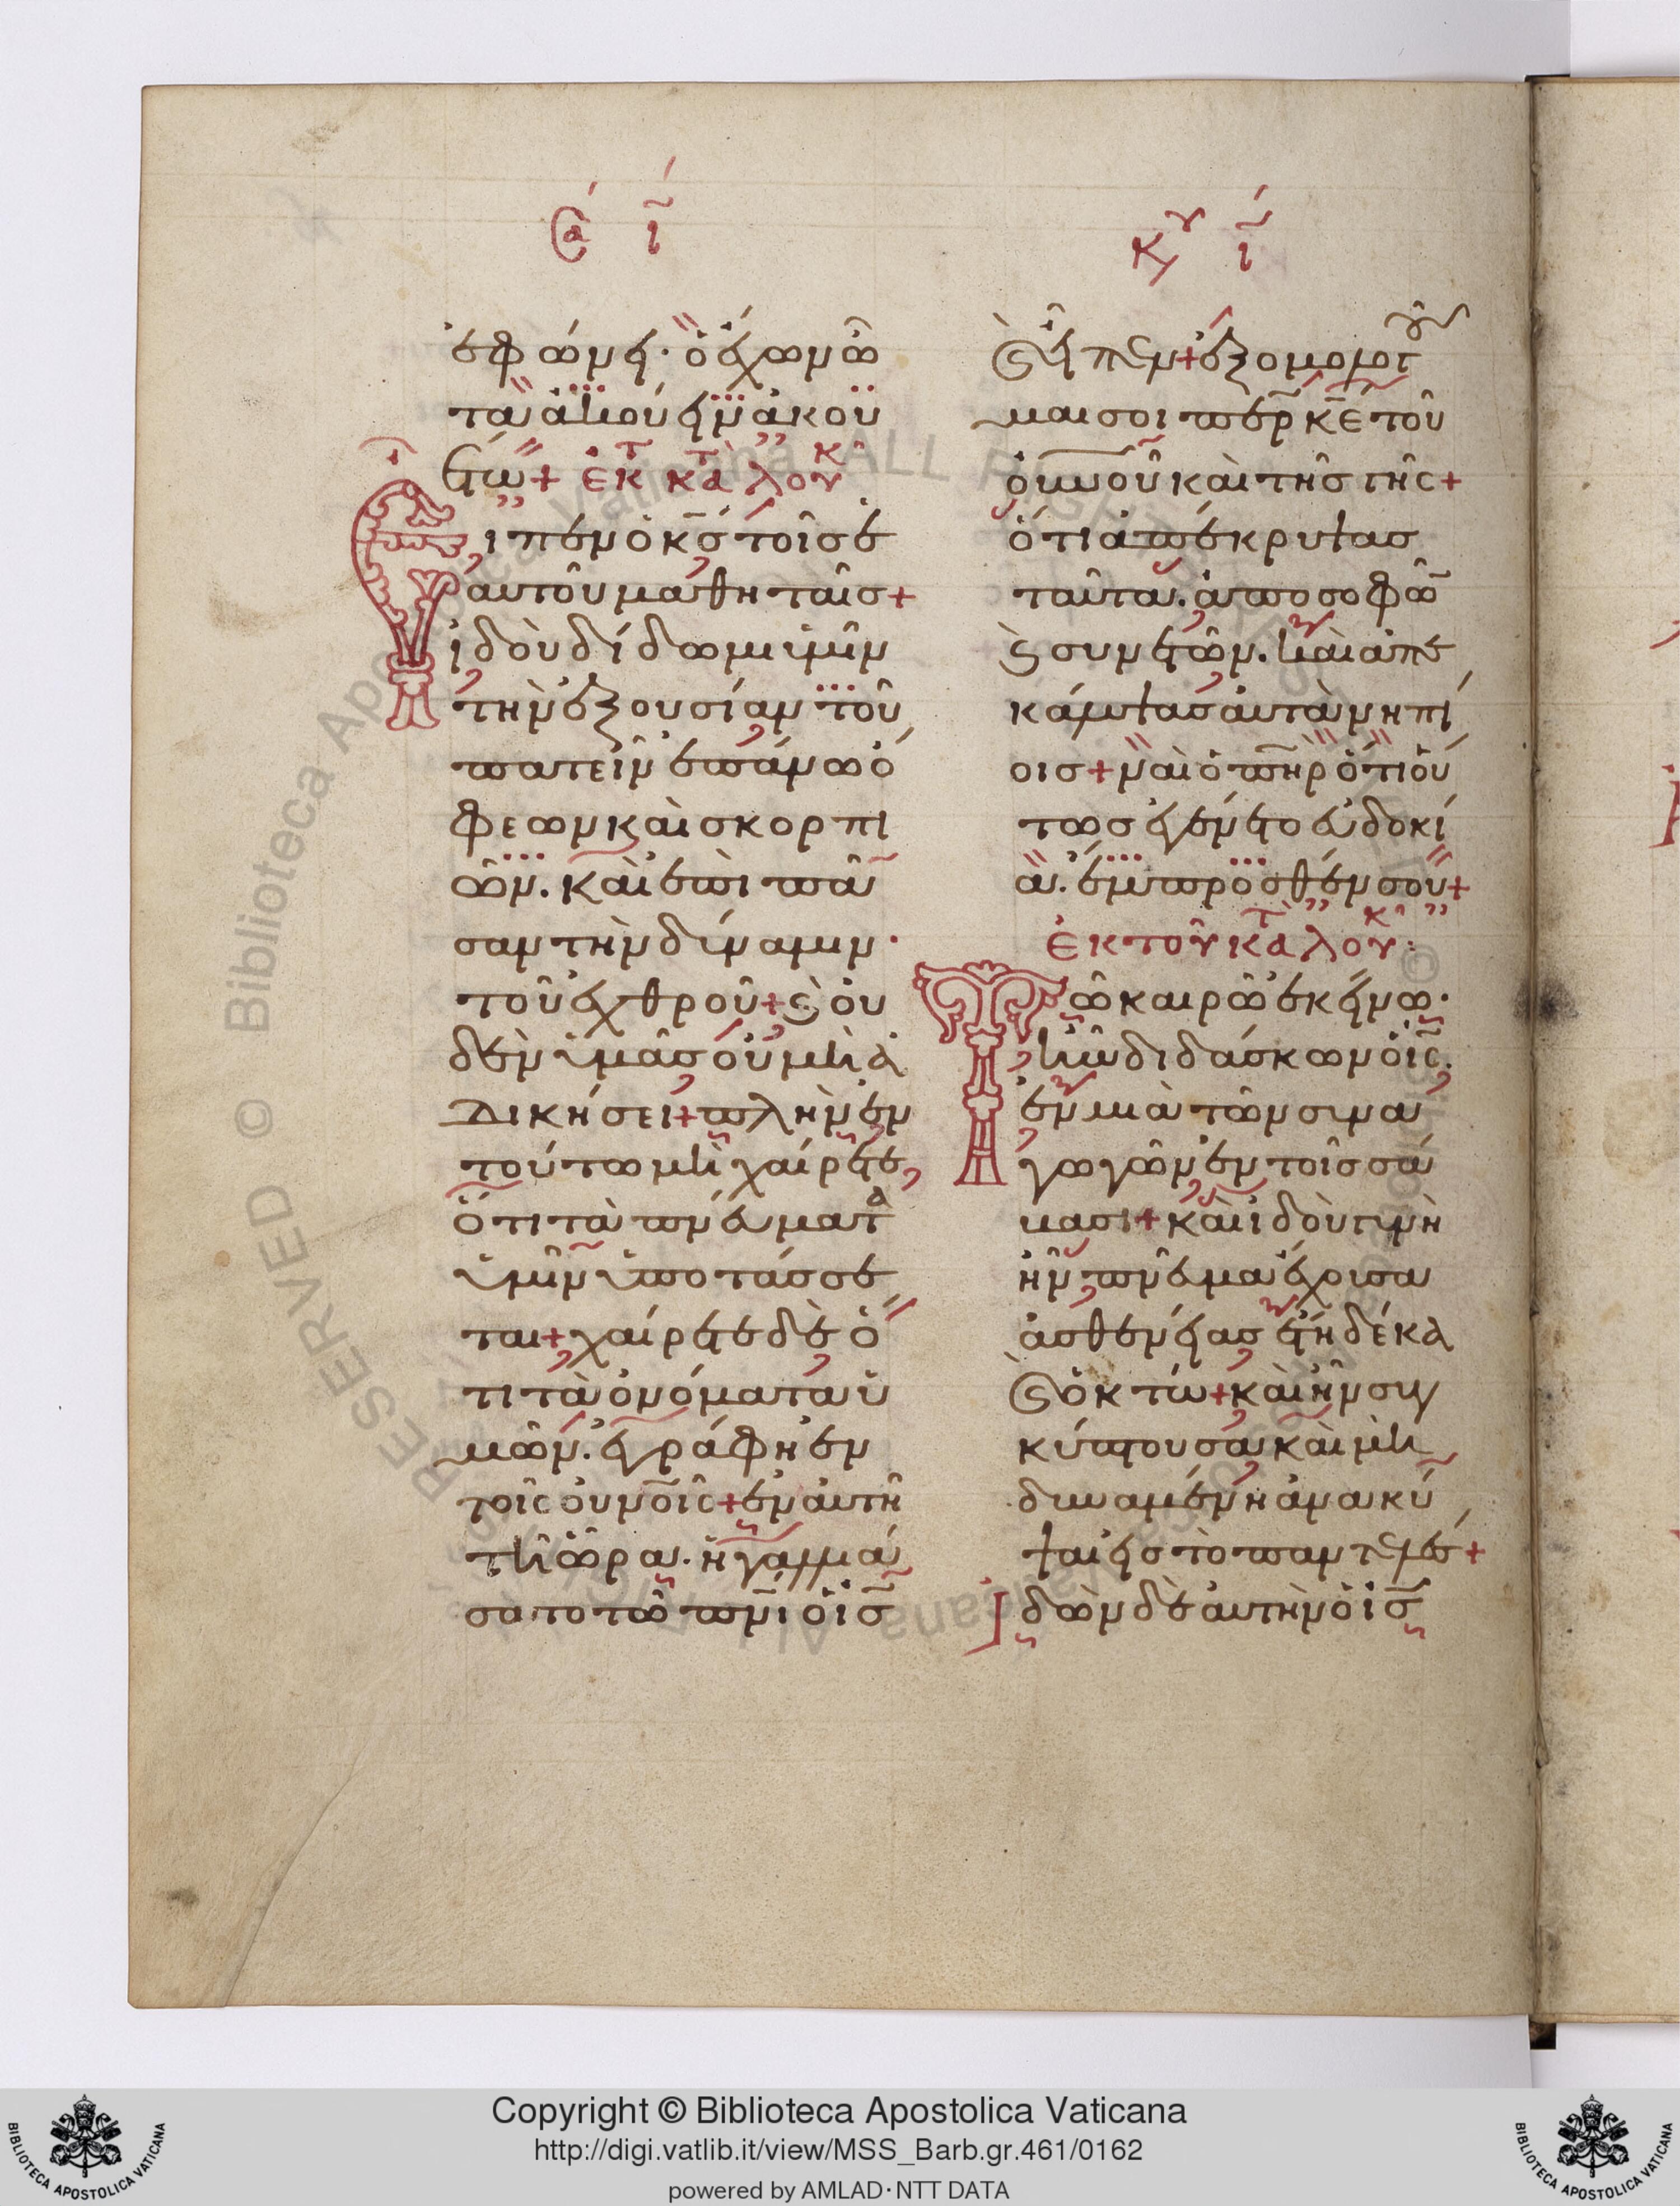 Σα ι
ἐφώνει· ὁ ἔχων ὦ
τα ἀκούειν ἀκου
έτω+ ἐκ τ κατὰ λουκ
Ειπεν ὁ κς τοῖς ἑ
αυτοῦ μαθηταῖς+
ἰδοὺ δίδωμι ὑμῖν
τὴν ἐξουσίαν τοῦ
πατεῖν ἐπάνω ὄ
φεων καὶ σκορπί
ων. καὶ ἐπὶ πᾶ
σαν τὴν δύναμιν·
τοῦ ἐχθροῦ+ ϛ οὐ
δὲν ὑμᾶς οὐ μὴ ἀ
δικήσει+ πλὴν ἐν
τούτω μὴ χαίρετε,
ὅτι τὰ πνεύματα
ὑμῖν ὑποτάσσε
ται+ χαίρετε δὲ ὅ
τι τὰ ὀνόματα ὑ
μῶν. ἐγράφη ἐν
τοῖς οὐνοῖς+ ἐν αὐτῆ
τῆ ὥρα. ἠγαλλιά
σατο τῶ πνι ὁ ις
Κυ ι
ϛ εἶπεν+ ἐξομολογοῦ
μαι σοι περ κε τοῦ
οὐνοῦ καὶ τῆς γῆς+
ὅτι ἀπέκρυψας
ταῦτα. ἀπὸ σοφῶ
ϛ συνετῶν. καὶ ἀπε
κάλυψας αὐτὰ νηπί
οις+ ναὶ ὁ πηρ ὅτι οὕ
τως ἐγένετο εὐδοκί
α. ἔμπροσθέν σου+
ἐκ τοῦ κατὰ λουκ·
Τῶ καιρῶ ἐκείνω·
ἦν διδάσκων ὁ ις.
ἐν μιὰ τῶν συνα
γωγῶν ἐν τοῖς σά
βασι+ καὶ ἰδοὺ γυνὴ
ἦν πνεῦμα ἔχουσα
ἀσθενείας ἔτη δέκα
ϛ ὀκτώ+ καὶ ἦν συγ
κύπτουσα καὶ μὴ
δυναμένη ἀνακύ
ψαι εἰς τὸ παντελές+
Ἰδὼν δὲ αὐτὴν ὁ ις
Copyright © Biblioteca Apostolica Vaticana
http://digi.vatlib.it/view/MSS_Barb.gr.461/0162
powered by AMLAD·NTT DATA